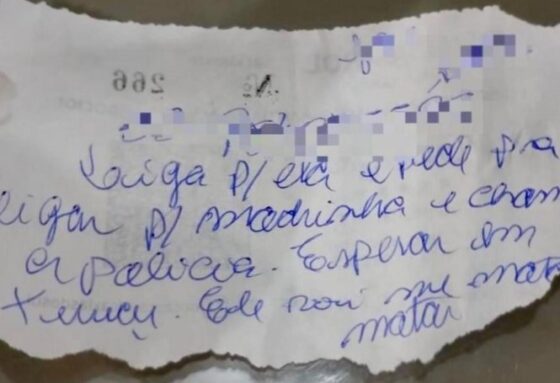 Nº 266
Liga p/ ela e pede pra
ligar p/ madrinha e cham
a polícia. Esperar em
Ele vai me matar
matar